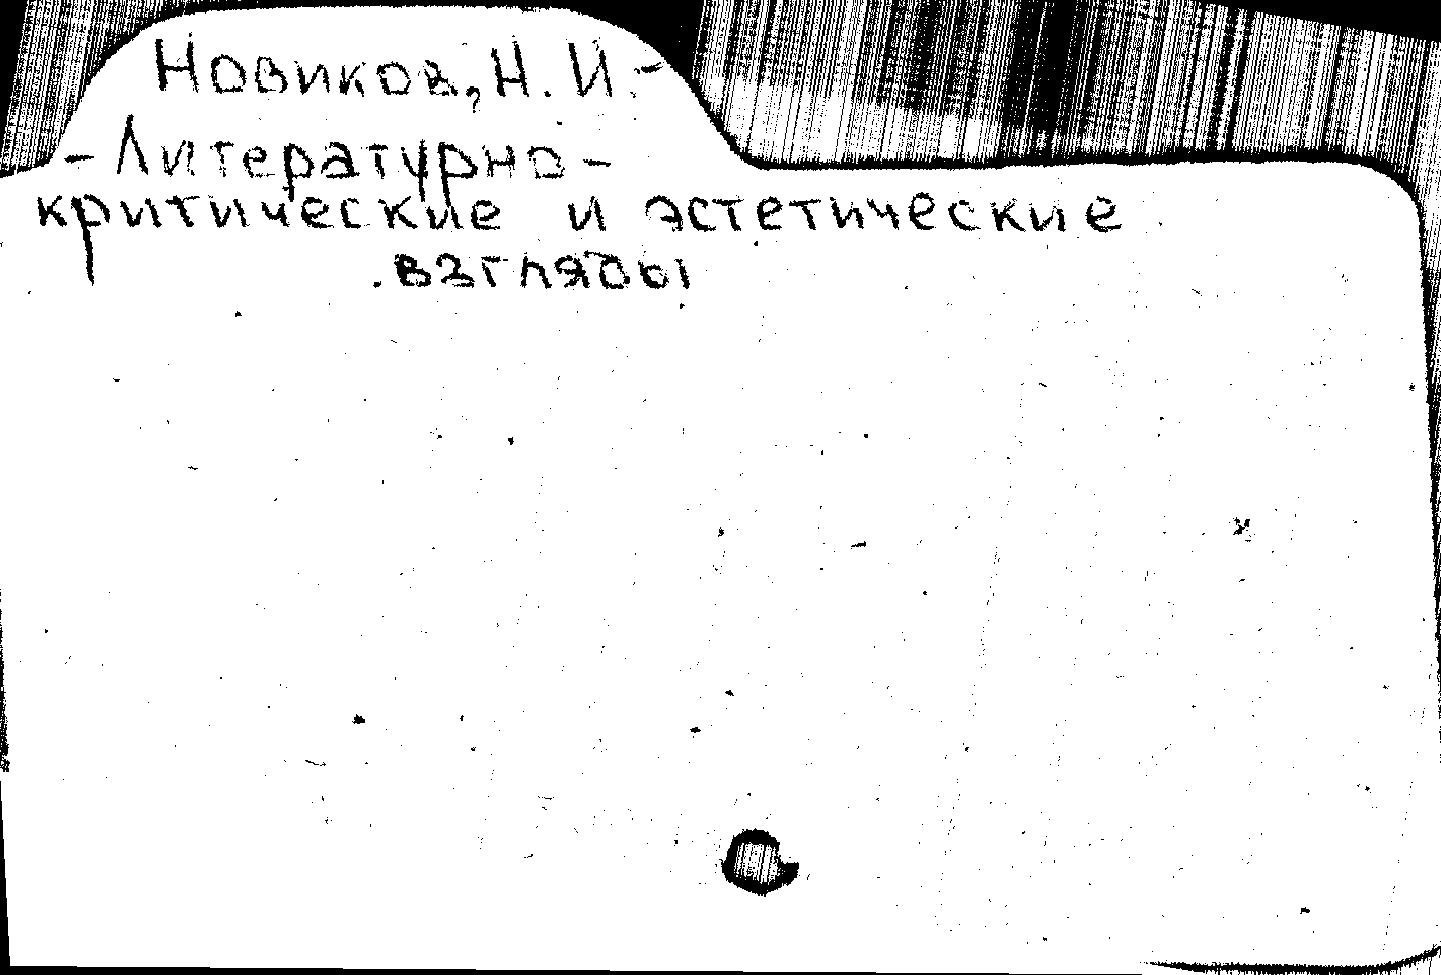 Новиков, Н. И. -
- Литературно -
критические и эстетические
взгляды